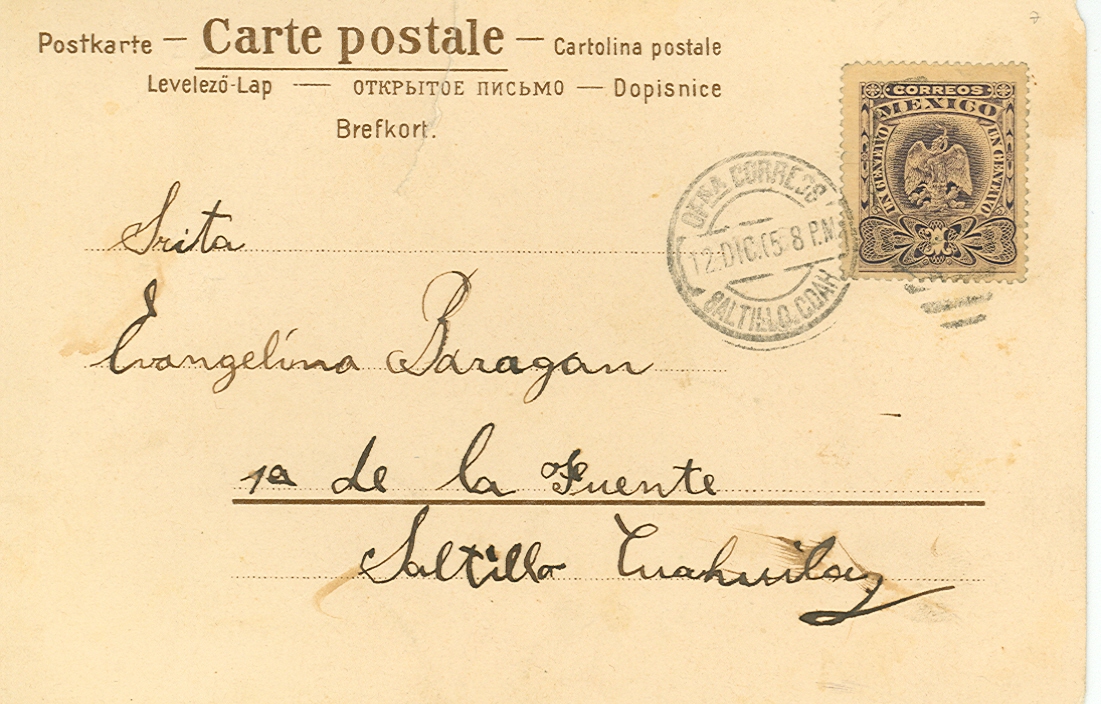 Postkarte — Carte postale — Cartolina postale
Levelező-Lap — ОТКРЫТОЕ ПИСЬМО — Dopisnice
Brefkort.
CORREOS
MEXICO
UN CENTAVO UN CENTAVO
OFNA CORREOS
12.DIC.05 8 P.M.
SALTILLO.COAH.
Srita
Evangelina Baragan
1a de la Fuente
Saltillo Cuahuila